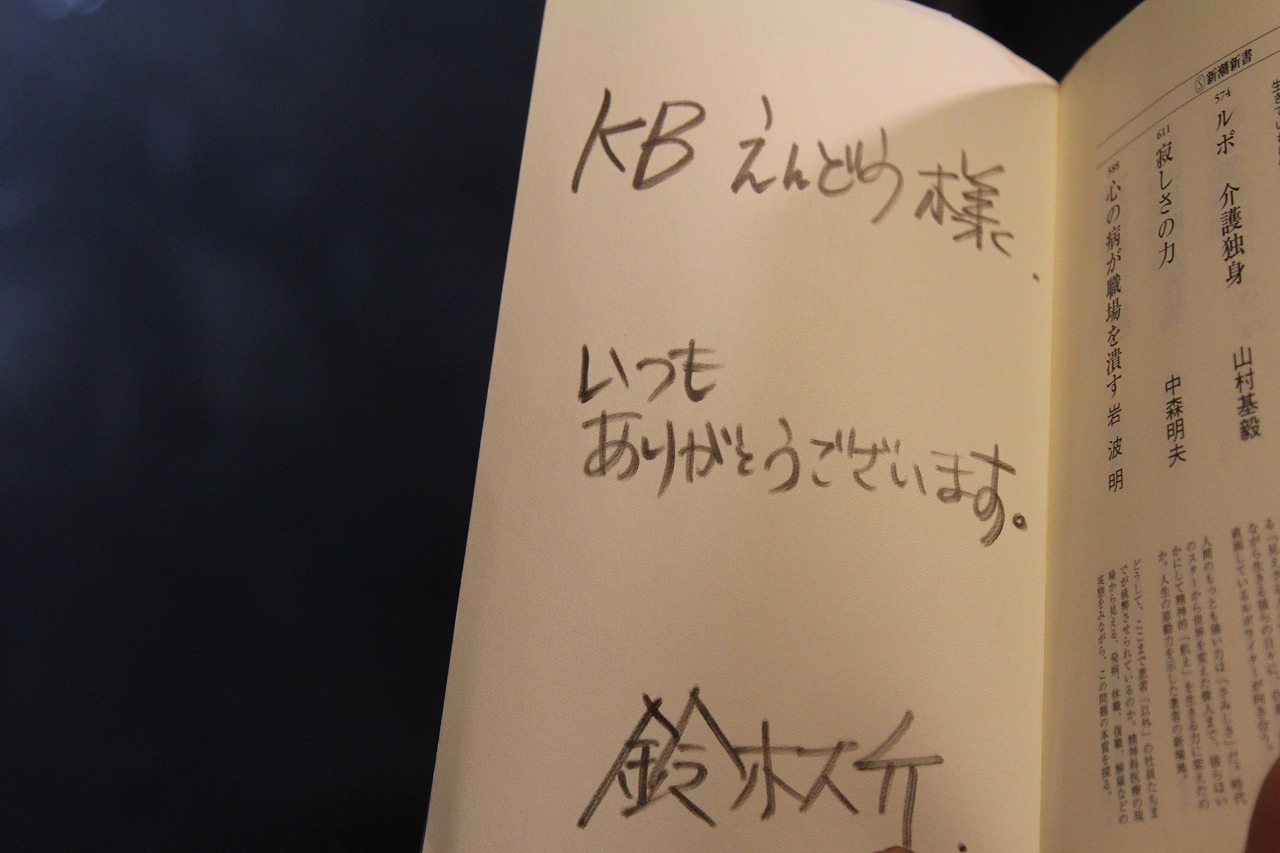 KB えんどう 様.
いつも
ありがとうございます。
鈴木大介.
Ⓢ新潮新書
574 ルポ 介護独身 山村基毅
直面しているルポライターが向き合う。
611 寂しさの力 中森明夫
人間のもっとも強い力は「さみしさ」だ。時代
のスターから世界を変えた偉人まで、彼らはい
かにして精神的「飢え」を生きる力に変えたの
か。人生の原動力を示した著者の新境地。
588 心の病が職場を潰す 岩波明
どうして、ここまで患者「以外」の社員たちま
でが疲弊させられているのか。精神科医療の現
場から見える、発病、休職、復職、解雇などの
実態をみながら、この問題の本質を探る。